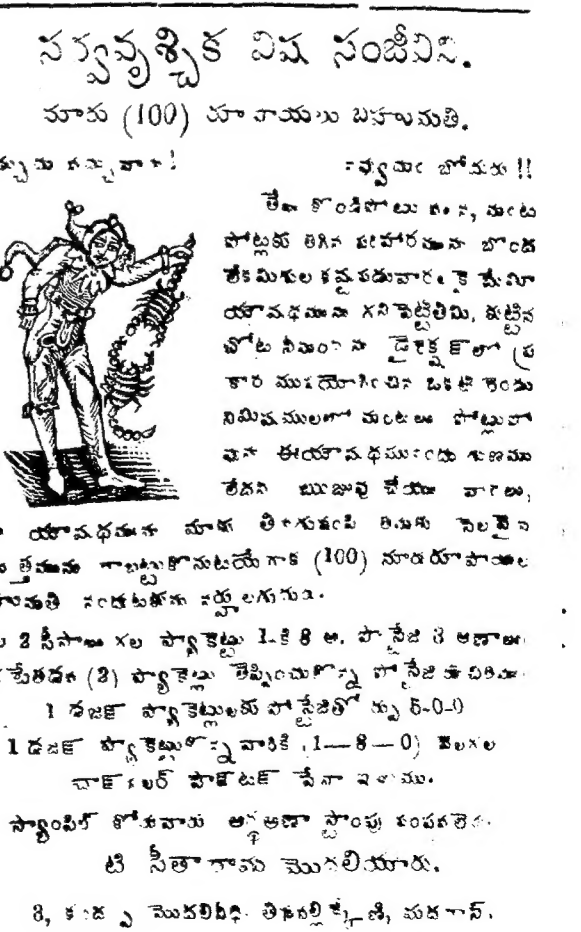 సర్వవృశ్చిక విష సంజీవిని.
నూరు (100) రూపాయలు బహుమతి.
నవ్వుచు వచ్చువారు! నవ్వుచుఁ బోవురు !!
తేలు కొండిపోటు వలన, మంట
పోట్లకు తగిన పరిహారమును బొంద
లేకమిగుల కష్టపడువారలకై మేమీ
యౌషధమును గనిపెట్టితిమి, కుట్టిన
చోట నీమందును డైరెక్షన్‌లో ప్ర
కారముపయోగించిన ఒకటి రెండు
నిమిషములలో మంటలు పోట్లుపో
వును ఈయౌషధమునందు గుణము
లేదని ఋజువు చేయు వారలు,
యౌషధమును మాకు తిరుగుపంపి తమకు సెలవైన
గాబట్టుకొనుటయేగాక (100) నూరురూపాయల
బహుమతి నందుటకును నర్హులగుదురు.
2 సీసాలు గల ప్యాకెట్టు 1-కి 8 అ. పోస్టేజి 3 అణాలు
(2) ప్యాకెట్లు తెప్పించుకొన్న పోస్టేజి
1 డజన్ ప్యాకెట్టులకు పోస్టేజితో రూ 5-0-0
1 డజన్ ప్యాకెట్టుకొన్న వారికి (1—8—0) వెలగల
పౌంటన్ పేనా ఇతుము.
స్యాంపిల్ కోరువారు అర్ధఅణా స్టాంపు పంపవలెను.
టి సీతారామ మొదలియారు.
8, మొదలివీధి తిరువల్లిక్కేణి, మదరాస్.